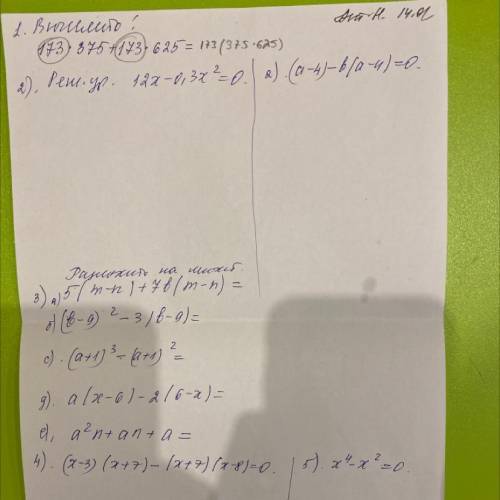 14.01
1. Вычислить!
173·375+173·625=173(375·625)
2). Реш.ур. 12x-0,3x²=0.
a) (a-4)-b(a-4)=0.
Разложить на множит.
3) a) 5(m-n)+7b(m-n)=
б) (b-9)²-3(b-9)=
c). (a+1)³-(a+1)²=
g). a(x-6)-2(6-x)=
e), a²n+an+a=
4). (x-3)(x+7)-(x+7)(x-8)=0.
5). x⁴-x²=0.